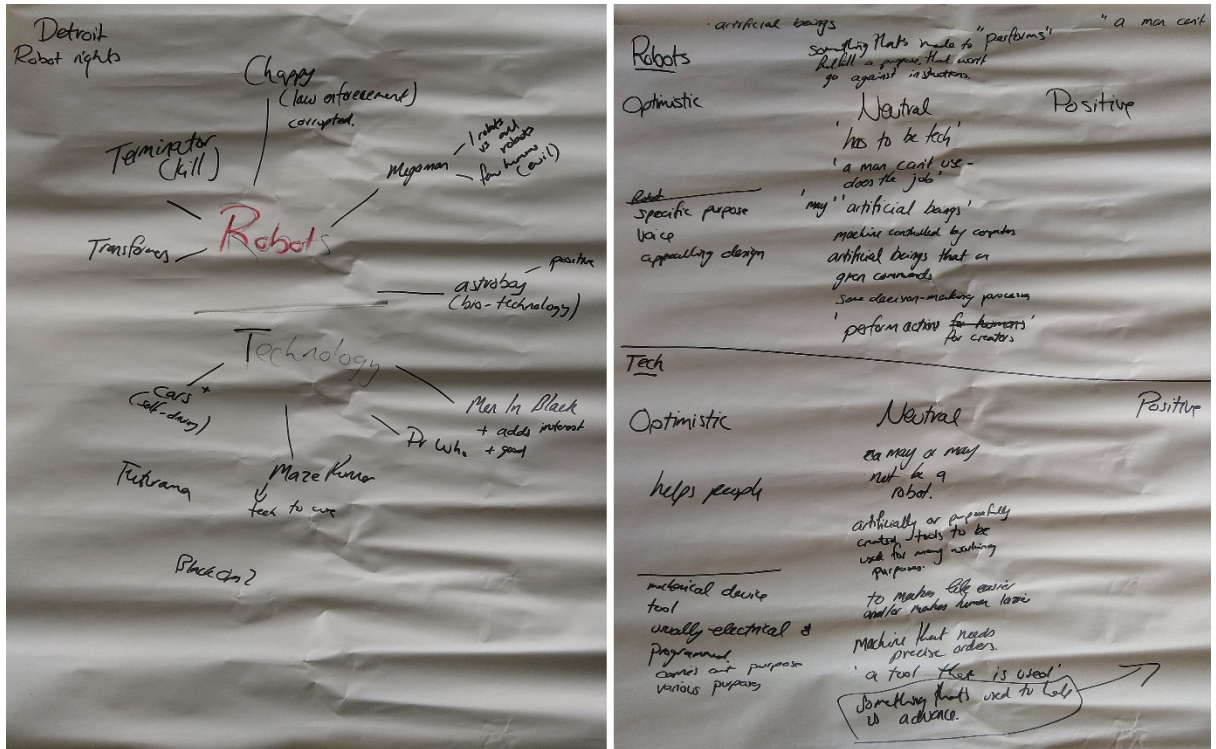 Detroit
Robot rights
Chappy
(law enforcement)
corrupted.
Terminator
(kill)
Megaman
1 robots
vs
robots
few humans
(evil)
Robots
Transformers
positive
astroboy
(bio-technology)
Technology
Cars +
(self-driving)
Men In Black
+ adds interest
+ good
Dr Who
Maze Runner
tech to cure
artificial beings
"a man can't
Robots
something that's made to "performs"
fulfill a purpose, that won't
go against instructions.
Optimistic
Neutral
Positive
'has to be tech'
'a man can't use -
does the job'
Robot
specific purpose
voice
appealling design
'may' 'artificial beings'
machine controlled by computers
artificial beings that
given commands
some decision-making processes
'perform action for humans'
for creators
Tech
Optimistic
Neutral
Positive
may or may
not be a
robot.
helps people
artificially or purposfully
created tools to be
used for many working
purposes.
mechanical device
tool
usually electrical &
programmed.
carries out purpose
various purposes
to makes life easier
and/or makes human lazier
Machine that needs
precise orders.
'a tool that is used'
something that's used to help
us advance.